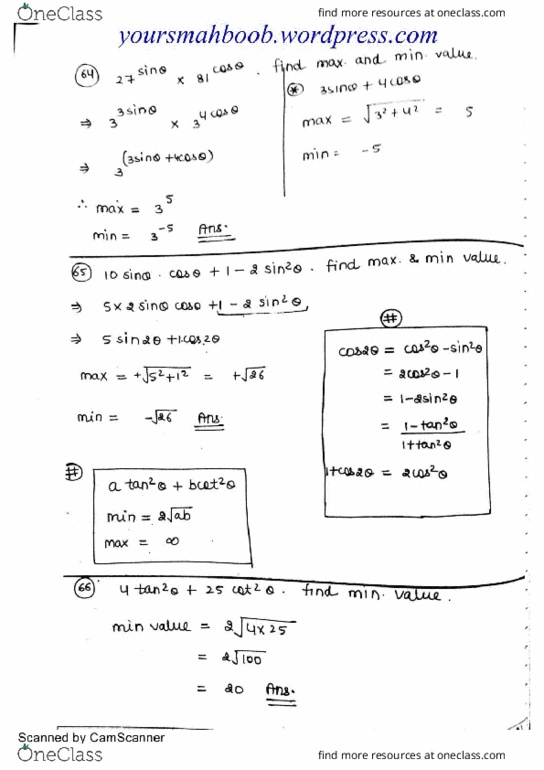 OneClass find more resources at oneclass.com
yoursmahboob.wordpress.com
64 27^sinθ × 81^cosθ . find max. and min. value.
⇒ 3^3sinθ × 3^4cosθ
⇒ 3^(3sinθ+4cosθ)
∴ max = 3^5
min = 3^-5 Ans.
* 3sinθ + 4cosθ
max = √3²+4² = 5
min = -5
65 10 sinθ . cosθ + 1 - 2 sin²θ . find max. & min value.
⇒ 5×2 sinθ cosθ + 1 - 2 sin²θ
⇒ 5 sin2θ + 1.cos2θ
max = +√5²+1² = +√26
min = -√26 Ans.
#
cos2θ = cos²θ - sin²θ
= 2cos²θ - 1
= 1-2sin²θ
= 1-tan²θ
1+tan²θ
1+cos2θ = 2cos²θ
#
a tan²θ + bcot²θ
min = 2√ab
max = ∞
66 4 tan²θ + 25 cot²θ . find min. value.
min value = 2√4×25
= 2√100
= 20 Ans.
Scanned by CamScanner
OneClass find more resources at oneclass.com